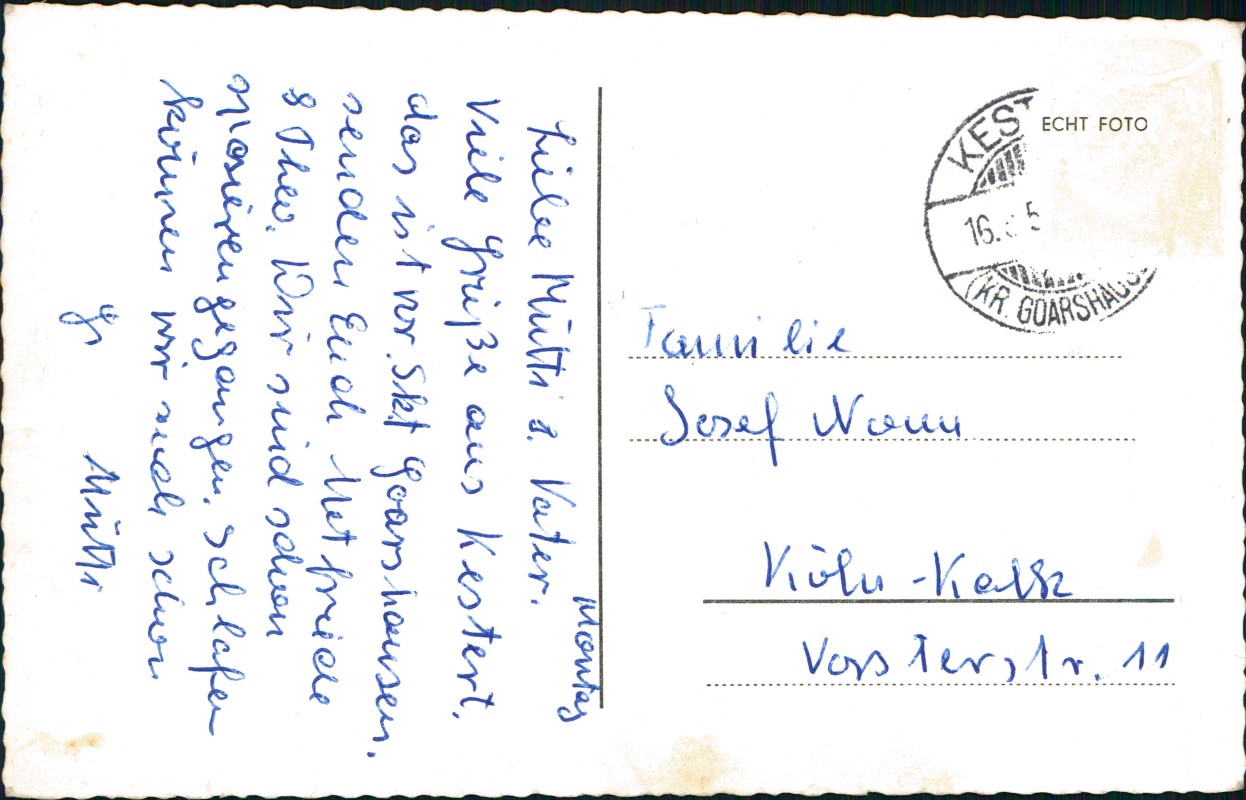 Montag
Liebe Mutti u. Vater.
Viele Grüße aus Kestert.
das ist vor. Skt Goarshausen.
senden Euch
& Theo. Wir sind schon
spazierengegangen. schlafen
können wir auch schon
Mutti
KEST
16.
(KR. GOARSHAUS
ECHT FOTO
Familie
Josef Nann
Köln-Kalk
Vorsterstr. 11